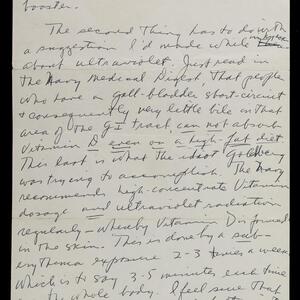 booster.
The second Thing has to do with
a suggestion I'd made while
about ultraviolet. Just read in
The Navy Medical Digest, That people
who have a gall-bladder short-circuit
& consequently very little bile in that
area of the GI track, can not absorb
Vitamin D even on a high-fat diet.
This last is what the idiot Goldberg
was trying to accomplish. The Navy
recommends high-concentrate Vitamin
dosage and ultraviolet radiation
regularly — whereby Vitamin D is formed
in the skin. This is done by a sub-
erythema exposure 2-3 times a week
Which is to say 3-5 minutes each time
the whole body. I feel sure That